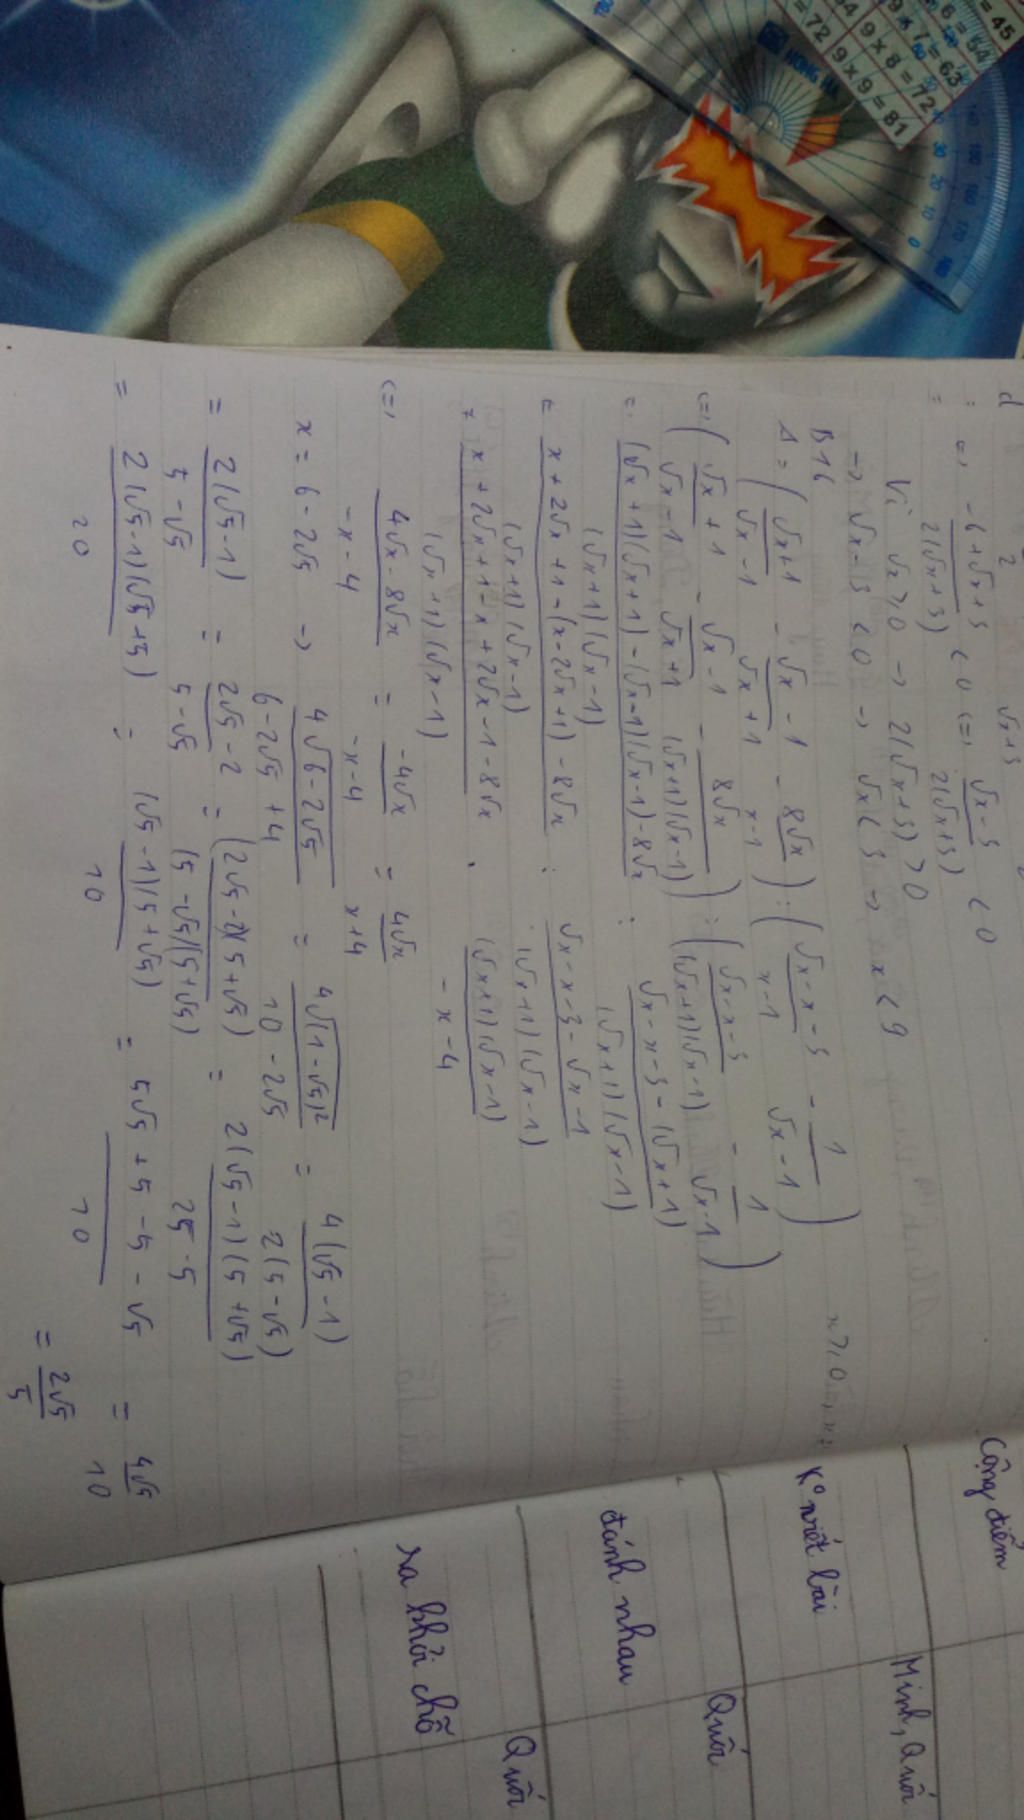 = 45
6 = 54
9 x 7 = 63
9 x 8 = 72
= 72 9 x 9 = 81
HONG HA
<=> -6+√x+3 / 2(√x+3) < 0 <=> √x-3 / 2(√x+3) < 0
Vì √x ≥ 0 → 2(√x+3) > 0
→ √x-3 < 0 → √x < 3 → x < 9
B16
A = ( √x+1 / √x-1 - √x-1 / √x+1 - 8√x / x-1 ) : ( √x-x-3 / x-1 - 1 / √x-1 )
<=> ( √x+1 / √x-1 - √x-1 / √x+1 - 8√x / (√x+1)(√x-1) ) : ( √x-x-3 / (√x+1)(√x-1) - 1 / √x-1 )
(√x+1)(√x+1)-(√x-1)(√x-1)-8√x / (√x+1)(√x-1) : √x-x-3-(√x+1) / (√x+1)(√x-1)
x+2√x+1-(x-2√x+1)-8√x / (√x+1)(√x-1) : √x-x-3-√x-1 / (√x+1)(√x-1)
x+2√x+1-x+2√x-1-8√x / (√x+1)(√x-1) . (√x+1)(√x-1) / -x-4
<=> 4√x-8√x / -x-4 = -4√x / -x-4 = 4√x / x+4
x = 6-2√5 → 4√6-2√5 / 6-2√5+4 = 4√(1-√5)² / 10-2√5 = 4(√5-1) / 2(5-√5)
= 2(√5-1) / 5-√5 = 2√5-2 / 5-√5 = (2√5-2)(5+√5) / (5-√5)(5+√5) = 2(√5-1)(5+√5) / 25-5
= 2(√5-1)(√5+5) / 20 = (√5-1)(5+√5) / 10 = 5√5+5-5-√5 / 10 = 4√5 / 10
= 2√5 / 5
Cộng điểm
Minh, Quới
K° viết bài
Quới
đánh nhau
Quới
ra khỏi chỗ